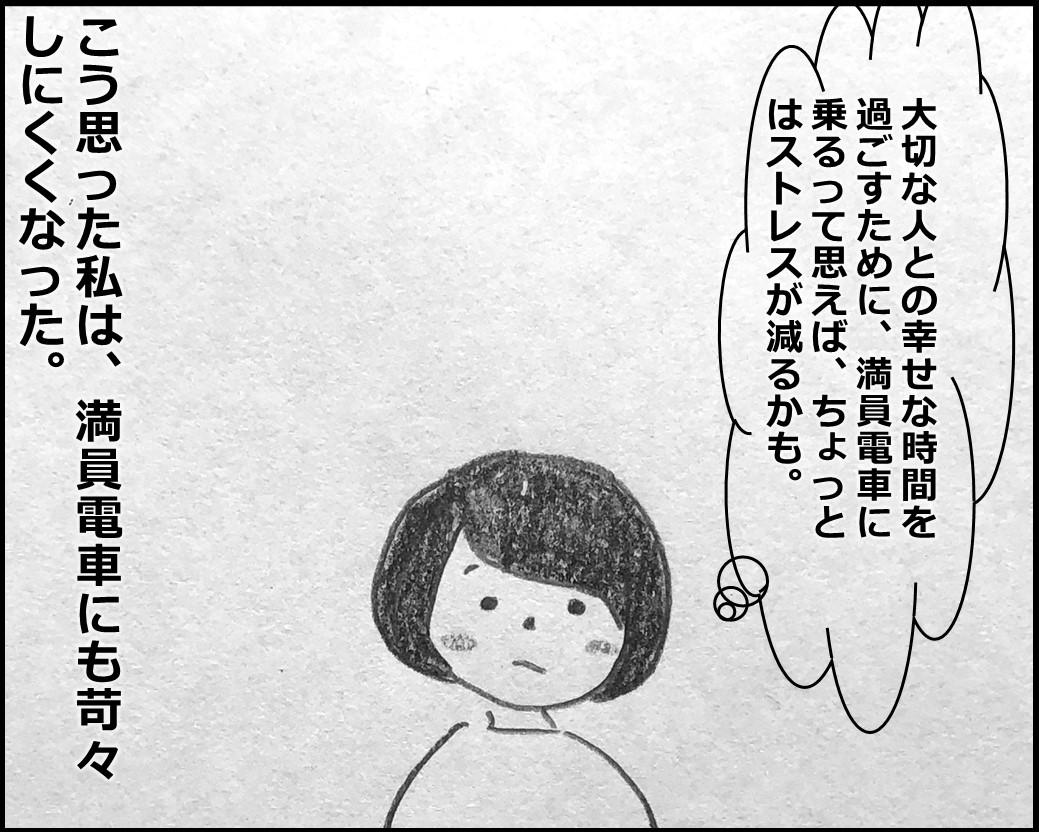 大切な人との幸せな時間を
過ごすために、満員電車に
乗るって思えば、ちょっと
はストレスが減るかも。
こう思った私は、満員電車にも苛々
しにくくなった。